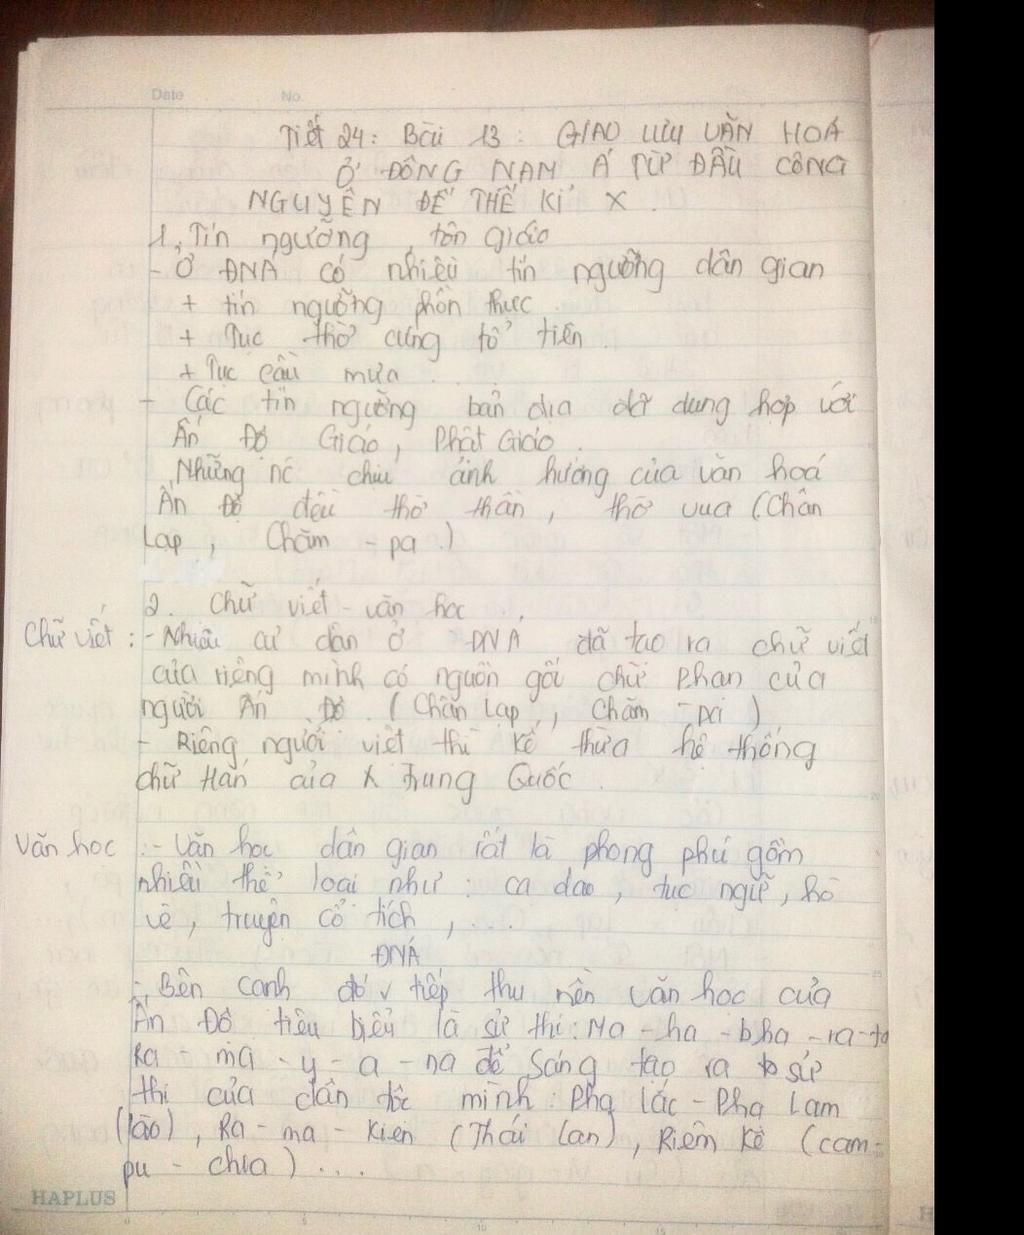 Date No.
Tiết 24: Bài 13: GIAO LƯU VĂN HOÁ
Ở ĐÔNG NAM Á TỪ ĐẦU CÔNG
NGUYÊN ĐẾ THẾ KỈ X.
1, Tín ngưỡng, tôn giáo
- Ở ĐNÁ có nhiều tín ngưỡng dân gian
+ tín ngưỡng phồn thực
+ Tục thờ cúng tổ tiên.
+ Tục cầu mưa ....
- Các tín ngưỡng bản địa đã dung hợp với
Ấn Độ Giáo, Phật Giáo.
Những nc chịu ảnh hưởng của văn hoá
Ấn Độ đều thờ thần, thờ vua (Chân
Lạp, Chăm - pa.)
2. Chữ viết - văn học.
Chữ viết: - Nhiều cư dân ở ĐNÁ đã tạo ra chữ viết
của riêng mình có nguồn gốc chữ Phạn của
người Ấn Độ. (Chân Lạp, Chăm - pa)
- Riêng người việt thì kế thừa hệ thống
chữ Hán của Trung Quốc.
Văn học: - Văn học dân gian rất là phong phú gồm
nhiều thể loại như: ca dao, tục ngữ, hò
vè, truyện cổ tích, ....
ĐNÁ
- Bên cạnh đó v tiếp thu nền văn học của
Ấn Độ tiêu biểu là sử thi: Ma - ha - bha - ra - ta
Ra - ma - y - a - na để sáng tạo ra sử
thi của dân tộc mình: Phạ lắc - Phạ Lam
(lào), Ra - ma - Kiên (Thái lan), Riêm Kê (cam-
pu - chia) ....
HAPLUS